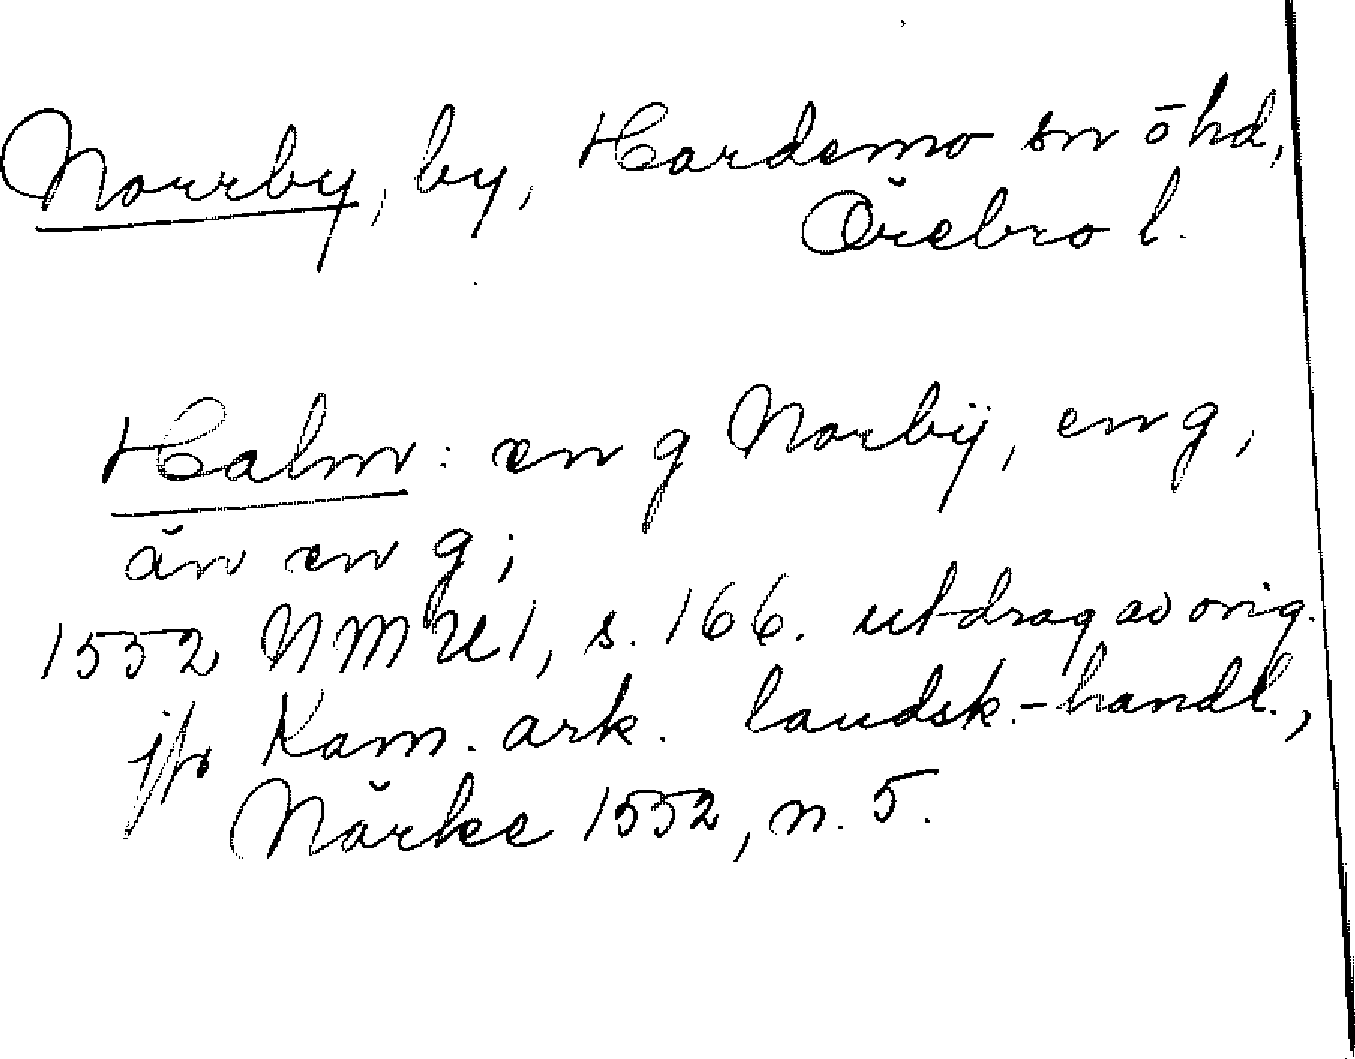 Norrby, by, Hardemo sn ö hd,
Örebro l.
Halm: en g Norbÿ, en g,
än en g;
1552 NMU1, s. 166. utdrag av orig.
jfr Kam. ark. landsk.-handl.,
Närke 1552, n. 5.